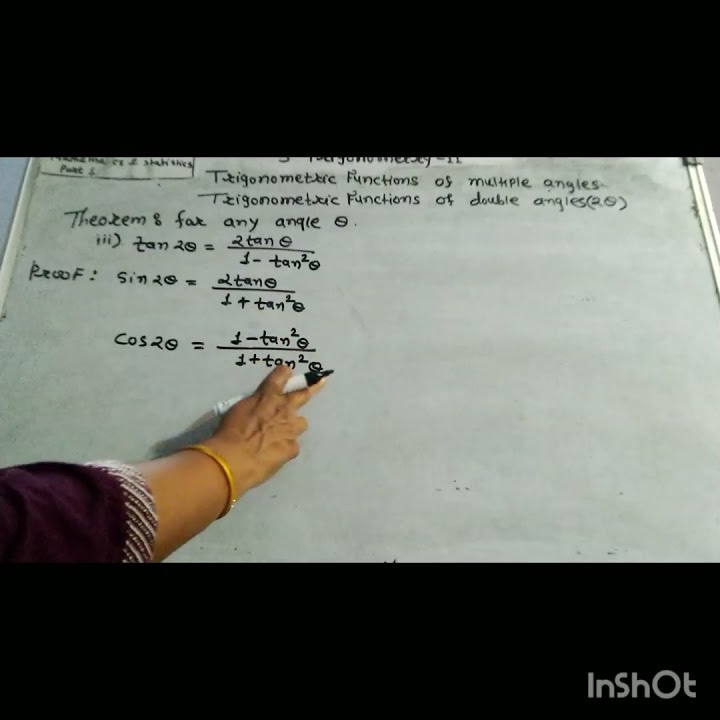 Part 1
Trigonometry-II
Trigonometric Functions of multiple angles.
Trigonometric Functions of double angles(2θ)
Theorem 8 for any angle θ.
iii) tan 2θ = 2tan θ / 1 - tan²θ
Proof : sin 2θ = 2tanθ / 1 + tan²θ
cos 2θ = 1-tan²θ / 1+tan²θ
InShOt